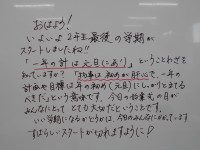 おはよう！
いよいよ2年生最後の学期が
スタートしましたね!!
「一年の計は元旦にあり」ということわざを
知っていますか？「物事は始めが肝心で、一年の
計画や目標は年の初め(元旦)にしっかりと立てる
べきだ」という意味です。今日の始業式の日が
みんなにとって とても大切だということです。
いい学期になるかどうかは、今日のみんなにかかっています
すばらしいスタートが切れますように！